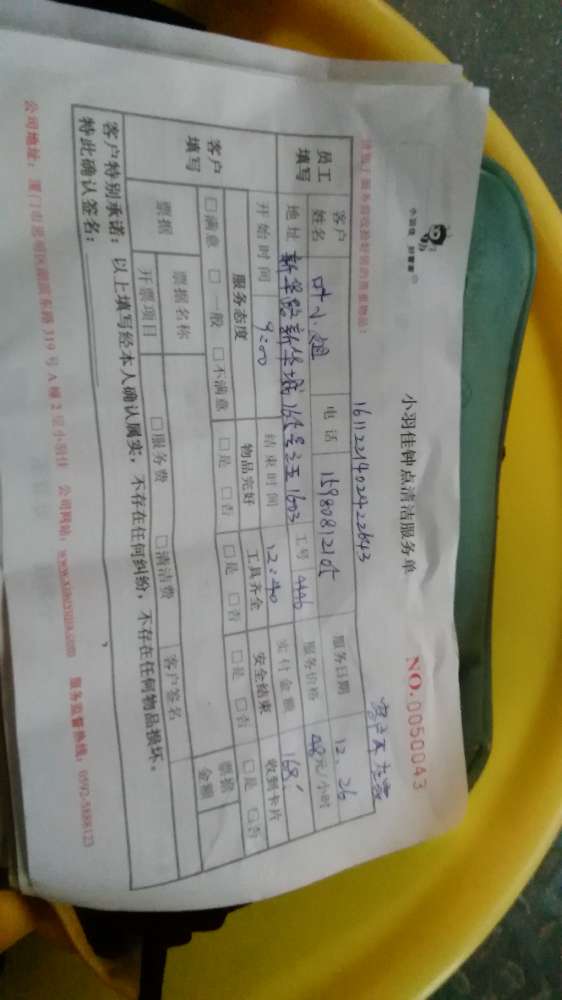 小羽佳 好管家
小羽佳钟点清洁服务单
NO.0050043
1611221402422643
客户不在家
员工填写
客户姓名 叶小姐 电话 服务日期 12.26
地址 新华路新华城 1603 工号 4496 服务价格 48元/小时
客户填写
开始时间 9:00 结束时间 12:40 实付金额 168
服务态度 物品完好 工具齐全 安全结束 收到卡片
□满意 □一般 □不满意 □是 □否 □是 □否 □是 □否 □是 □否
票据 票据名称 客户签名 票据金额
开票项目 □服务费 □清洁费
客户特别承诺:以上填写经本人确认属实,不存在任何纠纷,不存在任何物品损坏。
特此确认签名:
公司地址:厦门市思明区 319号A幢2层小羽佳 公司网站:www.xiaoyujia.com 服务监督热线:0592-5688123